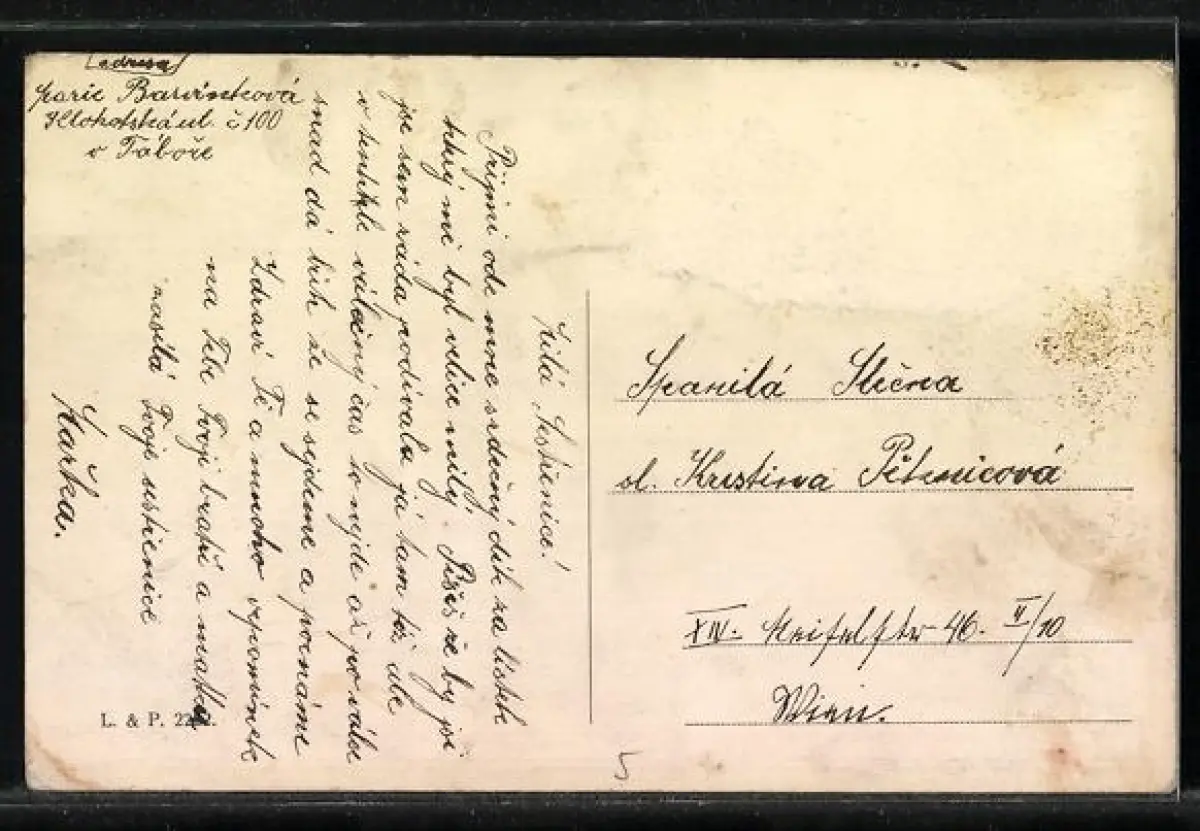 adresa
Marie Barvínková
Klokotská ul. č 100
v Táboře
Milá Sestřenice!
Prijmi ode mne srdečný dík za lístek
který mě byl velice milý. Píšeš že by jsi
jse sem ráda podívala já tam též ale
v tenhle válečný čas to nejde až po válce
snad dá bůh že se sejdeme a poznáme
Zdraví Tě a mnoho vzpomínek
na Tebe Tvoji bratři a matka
zasílá Tvoje sestřenice
Mařka.
Spanilá Slečna
sl. Kristina Petrnicová
XIV. 46. II/10
Wien.
L. & P. 22